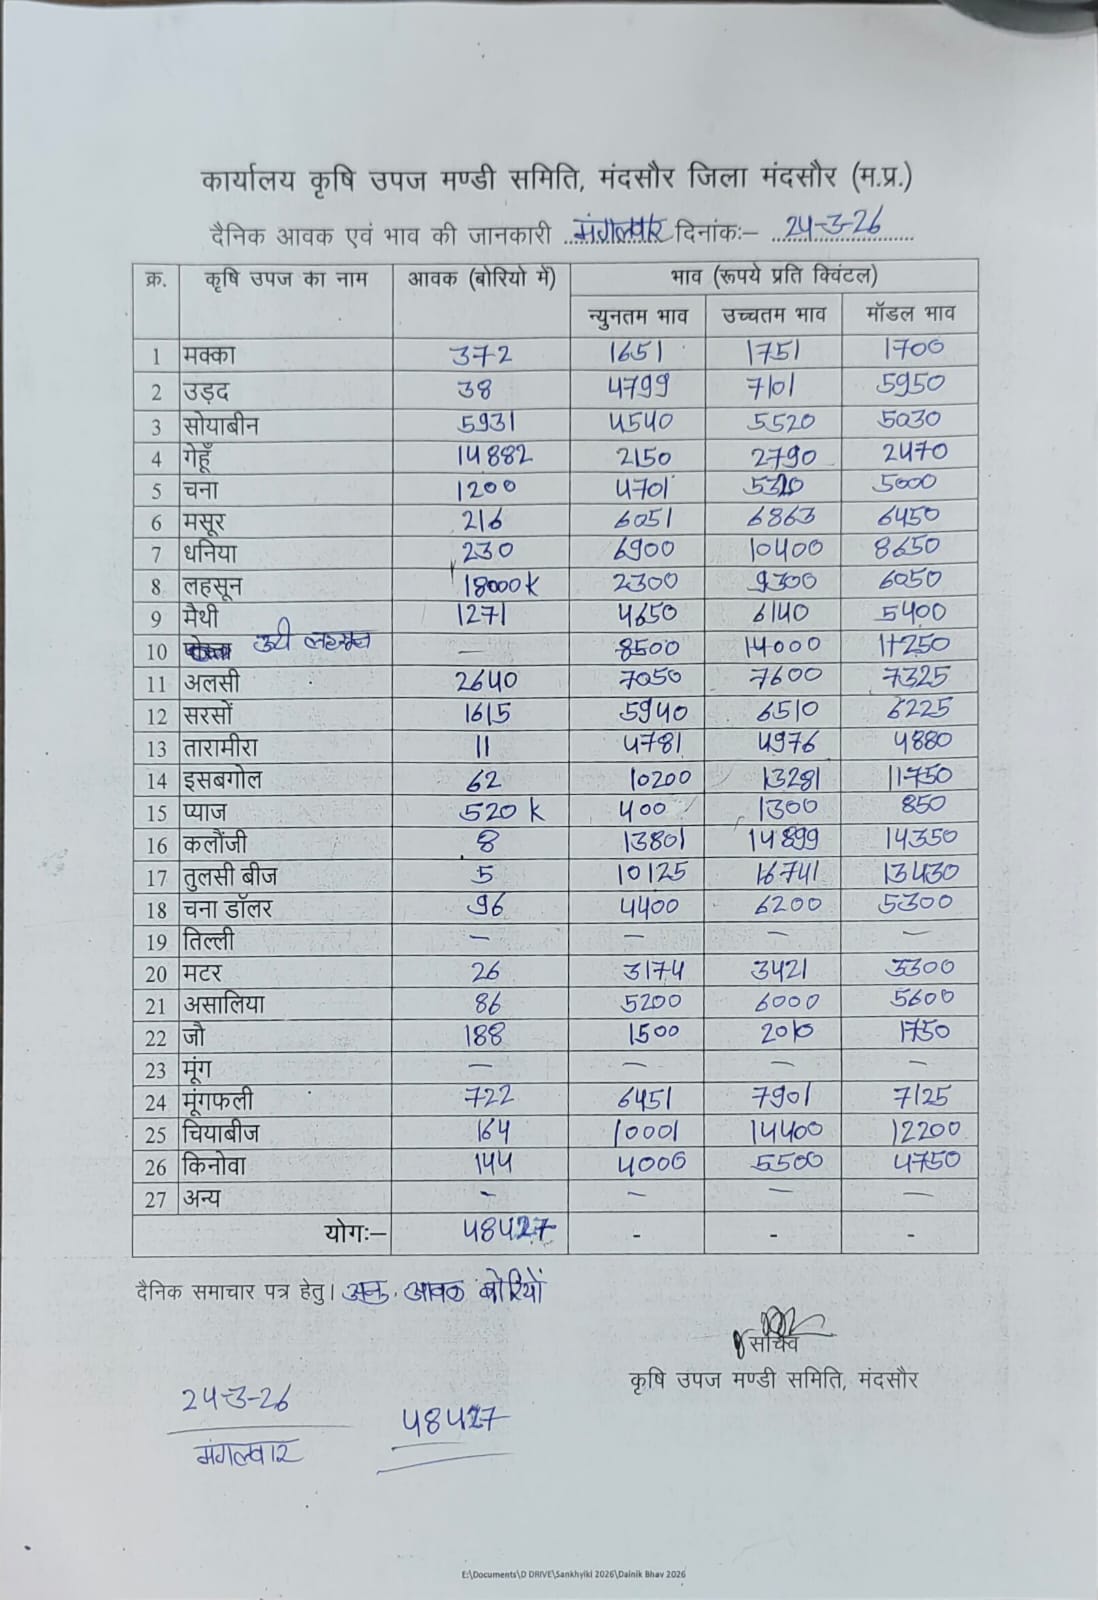 कार्यालय कृषि उपज मण्डी समिति, मंदसौर जिला मंदसौर (म.प्र.)
दैनिक आवक एवं भाव की जानकारी मंगलवार दिनांकः– 24-3-26
क्र. कृषि उपज का नाम आवक (बोरियो में) भाव (रूपये प्रति क्विंटल)
न्युनतम भाव उच्चतम भाव मॉडल भाव
1 मक्का 372 1651 1751 1700
2 उड़द 38 4799 7101 5950
3 सोयाबीन 5931 4540 5520 5030
4 गेहूँ 14882 2150 2790 2470
5 चना 1200 4701 5320 5000
6 मसूर 216 6051 6863 6450
7 धनिया 230 6900 10400 8650
8 लहसून 18000k 2300 9300 6050
9 मैथी 1271 4650 6140 5400
10 लहसून — 8500 14000 11250
11 अलसी 2640 7050 7600 7325
12 सरसों 1615 5940 6510 6225
13 तारामीरा 11 4781 4976 4880
14 इसबगोल 62 10200 13281 11750
15 प्याज 520 k 400 1300 850
16 कलौंजी 8 13801 14899 14350
17 तुलसी बीज 5 10125 16741 13430
18 चना डॉलर 96 4400 6200 5300
19 तिल्ली — — — —
20 मटर 26 3174 3421 3300
21 असालिया 86 5200 6000 5600
22 जौ 188 1500 2010 1750
23 मूंग — — — –
24 मूंगफली 722 6451 7901 7125
25 चियाबीज 164 10001 14400 12200
26 किनोवा 144 4000 5500 4750
27 अन्य - – — —
योगः– 48427 - - -
दैनिक समाचार पत्र हेतु। अनु. आवक बोरियों
सचिव
कृषि उपज मण्डी समिति, मंदसौर
24-3-26
48427
मंगलवार
E:\Documents\D DRIVE\Sankhyiki 2026\Dainik Bhav 2026